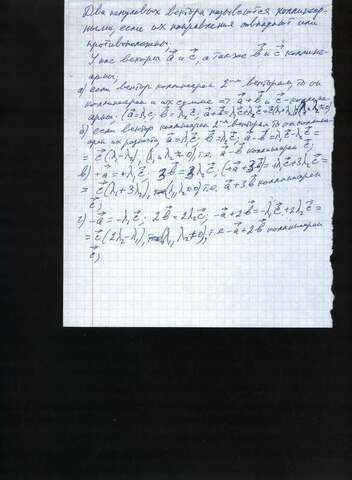 Два ненулевых вектора называются коллинеар-
ными, если их направления совпадают или
противоположны.
У нас векторы a⃗ и c⃗, а также b⃗ и c⃗ коллине-
арны,
а) если вектор коллинеарен 2-м векторам то он
коллинеарен и их сумме => a⃗+b⃗ и c⃗-коллине-
арны. (a⃗=λ₁c⃗; b⃗=λ₂c⃗; a⃗+b⃗=λ₁c⃗+λ₂c⃗=
б) если вектор коллинеарен 2-м векторам то он коллине-
арен их разности a⃗=λ₁c⃗ b⃗=λ₂c⃗, a⃗-b⃗=λ₁c⃗-λ₂c⃗=
=c⃗(λ₁-λ₂), (λ₁λ₂≠0), т.е. a⃗-b⃗ коллинеарен c⃗;
в) +a⃗=+λ₁c⃗; 3b⃗=3λ₂c⃗; (+a⃗+3b⃗)=+λ₁c⃗+3λ₂c⃗=
=c⃗(λ₁+3λ₂), (λ₁λ₂≠0) т.е. a⃗+3b⃗ коллинеарен
c⃗;
г) -a⃗=-λ₁c⃗; 2b⃗=2λ₂c⃗; -a⃗+2b⃗=-λ₁c⃗+2λ₂c⃗=
=c⃗(2λ₂-λ₁), (λ₁λ₂≠0), т.е -a⃗+2b⃗ коллинеарен
c⃗;